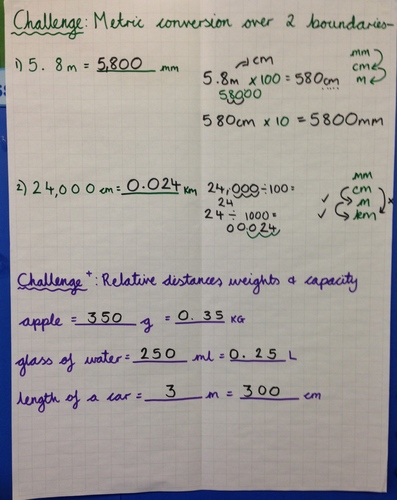 Challenge: Metric conversion over 2 boundaries-
1) 5.8m = 5,800 mm
cm
5.8m x 100 = 580cm
58000
580cm x 10 = 5800mm
mm
cm
m
2) 24,000cm = 0.024 Km
24,000÷100=
24
24 ÷ 1000=
00.024
mm
cm
m
km
Challenge+: Relative distances weights & capacity
apple = 350 g = 0.35 KG
glass of water = 250 ml = 0.25 L
length of a car = 3 m = 300 cm